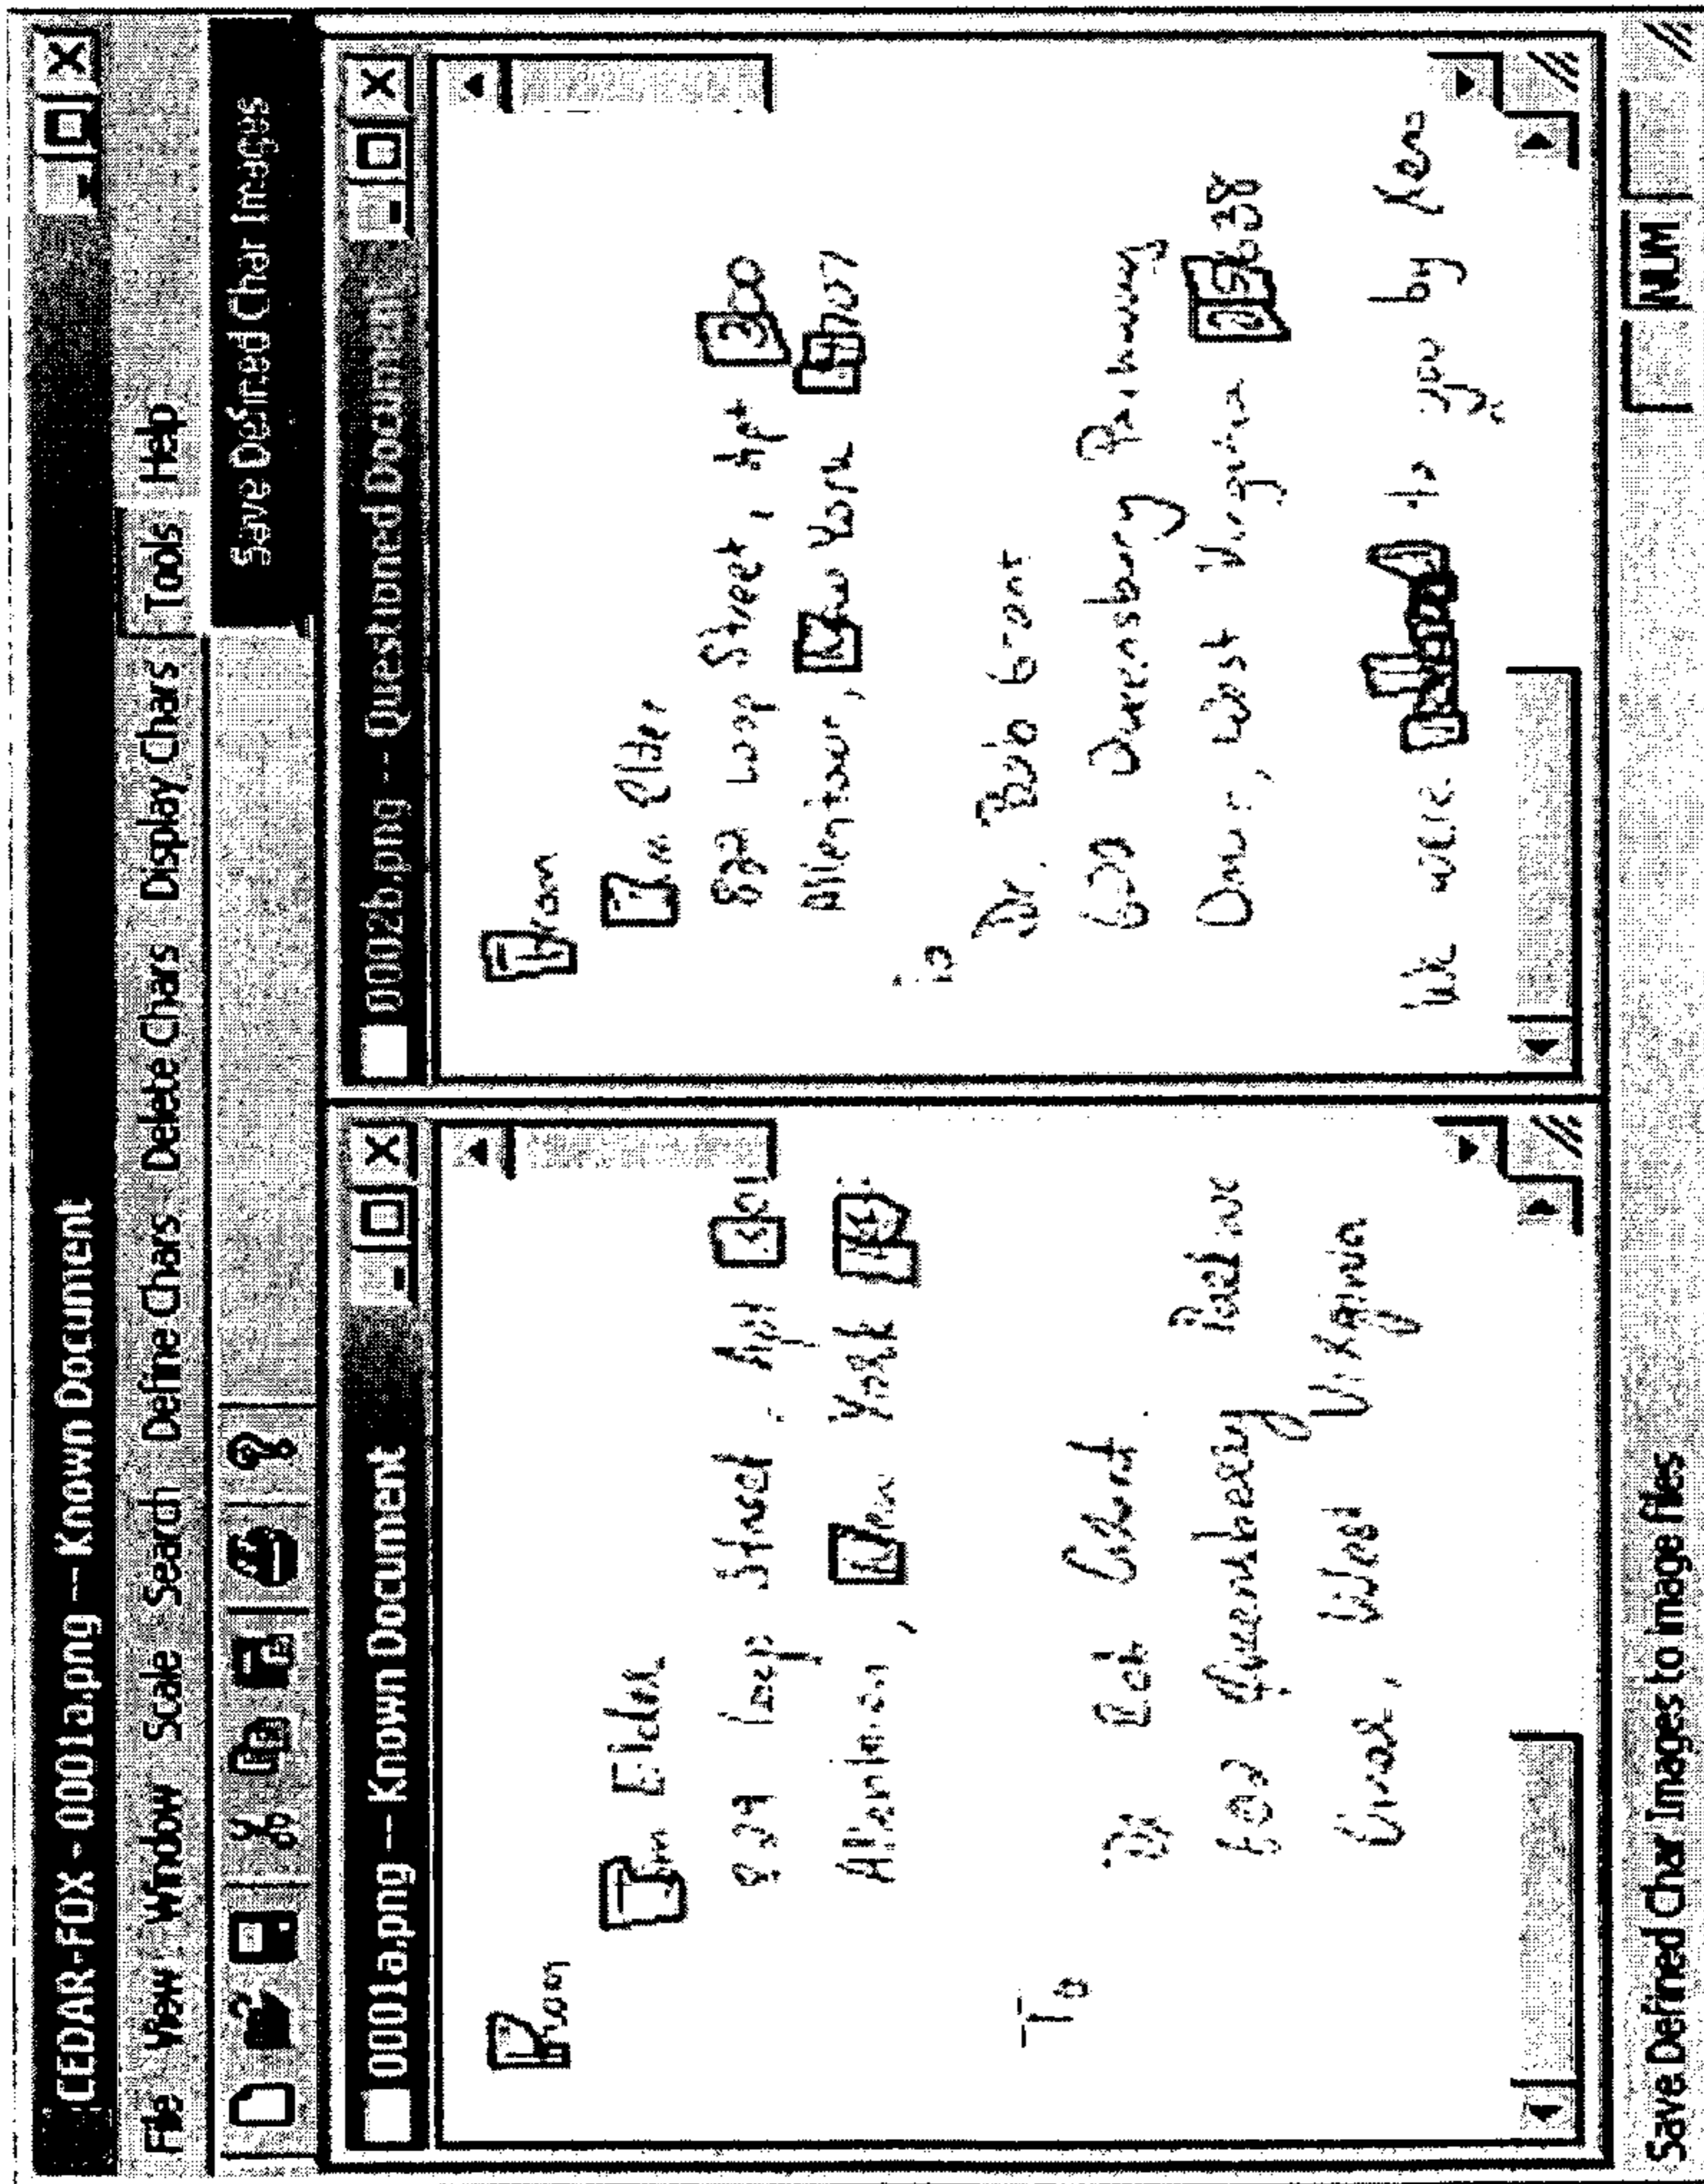 CEDAR-FOX - 0001a.png -- Known Document
File View Window Scale Search Define Chars Delete Chars Display Chars Tools Help
Save Defined Char Images
0001a.png -- Known Document
From
Jim Elder
829 Loop Street, Apt 301
Allentown, New York
To
Dr Bob Grant.
602 Queensberry
Omar, West Virginia
0002b.png -- Questioned Document
From
Jim Elder
829 Loop Street, Apt 300
Allentown, New York 14707
To
Dr. Bob Grant
602 Queensbury Parkway
Omar, West Virginia 25638
We were to you by Xero
Save Defined Char Images to image files
NUM